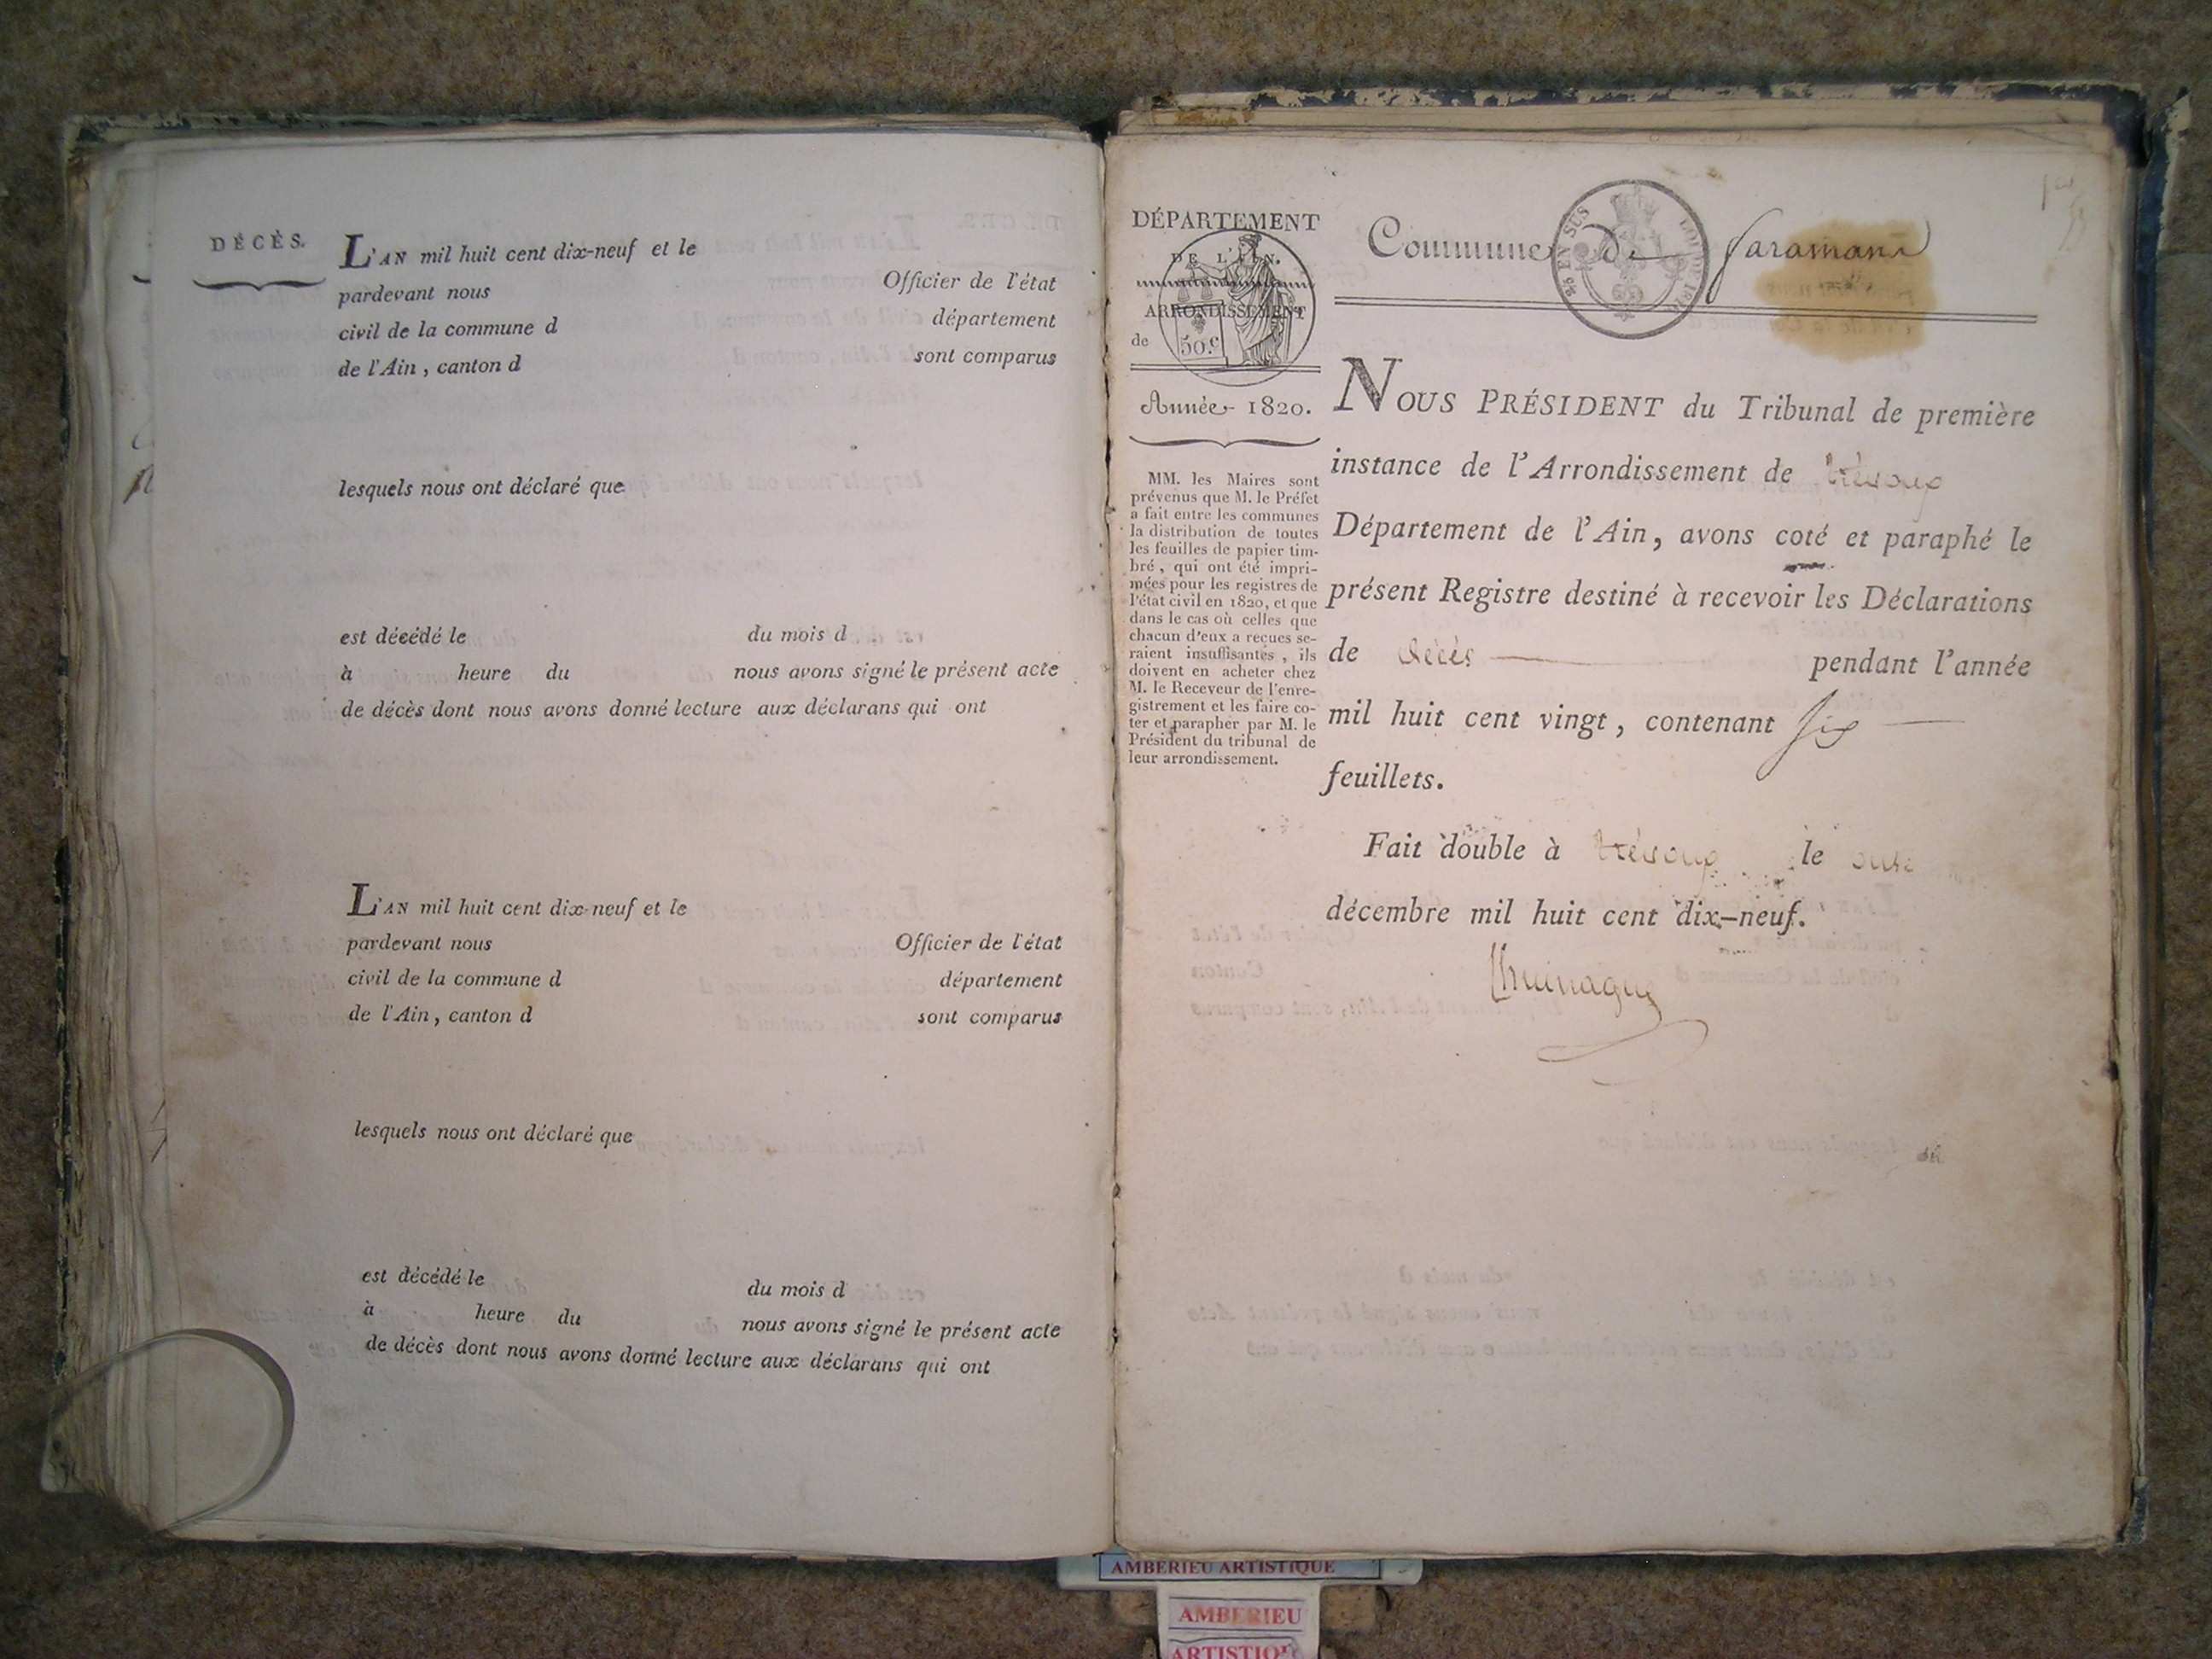 DÉCÈS.
L'AN mil huit cent dix-neuf et le
pardevant nous Officier de l'état
civil de la commune d département
de l'Ain, canton d sont comparus
lesquels nous ont déclaré que
est décédé le du mois d
à heure du nous avons signé le présent acte
de décès dont nous avons donné lecture aux déclarans qui ont
L'AN mil huit cent dix-neuf et le
pardevant nous Officier de l'état
civil de la commune d département
de l'Ain, canton d sont comparus
lesquels nous ont déclaré que
est décédé le du mois d
à heure du nous avons signé le présent acte
de décès dont nous avons donné lecture aux déclarans qui ont
DÉPARTEMENT
DE L'AIN.
ARRONDISSEMENT
de
50.c
Année 1820.
MM. les Maires sont
prévenus que M. le Préfet
a fait entre les communes
la distribution de toutes
les feuilles de papier tim-
bré, qui ont été impri-
mées pour les registres de
l'état civil en 1820, et que
dans le cas où celles que
chacun d'eux a reçues se-
raient insuffisantes, ils
doivent en acheter chez
M. le Receveur de l'enre-
gistrement et les faire co-
ter et parapher par M. le
Président du tribunal de
leur arrondissement.
Commune de faramans
EN SUS
NOUS PRÉSIDENT du Tribunal de première
instance de l'Arrondissement de trévoux
Département de l'Ain, avons coté et paraphé le
présent Registre destiné à recevoir les Déclarations
de décès pendant l'année
mil huit cent vingt, contenant six
feuillets.
Fait double à trévoux le onze
décembre mil huit cent dix-neuf.
AMBERIEU ARTISTIQUE
AMBERIEU
ARTISTIQUE